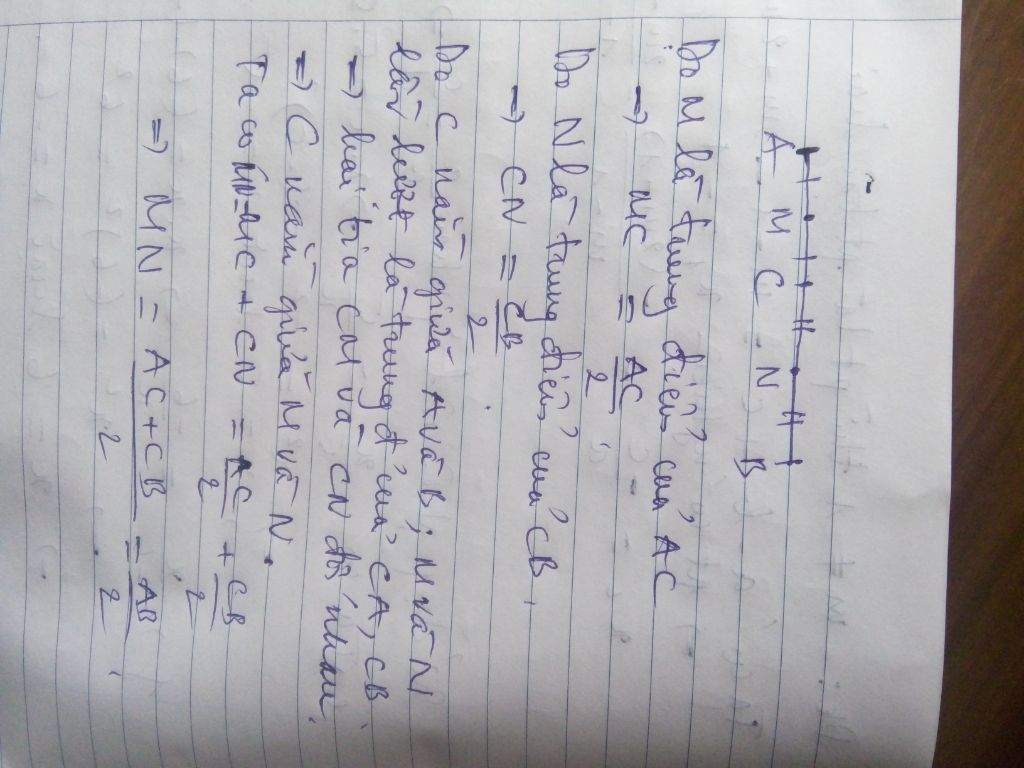 A M C N B
Do M là trung điểm của AC
=> MC = AC/2
Do N là trung điểm của CB.
=> CN = CB/2
Do C nằm giữa A và B; M và N
lần lượt là trung đ' của CA, CB.
=> hai tia CM và CN đối nhau.
=> C nằm giữa M và N.
Ta có MN=MC + CN = AC/2 + CB/2
=> MN = AC+CB/2 = AB/2.